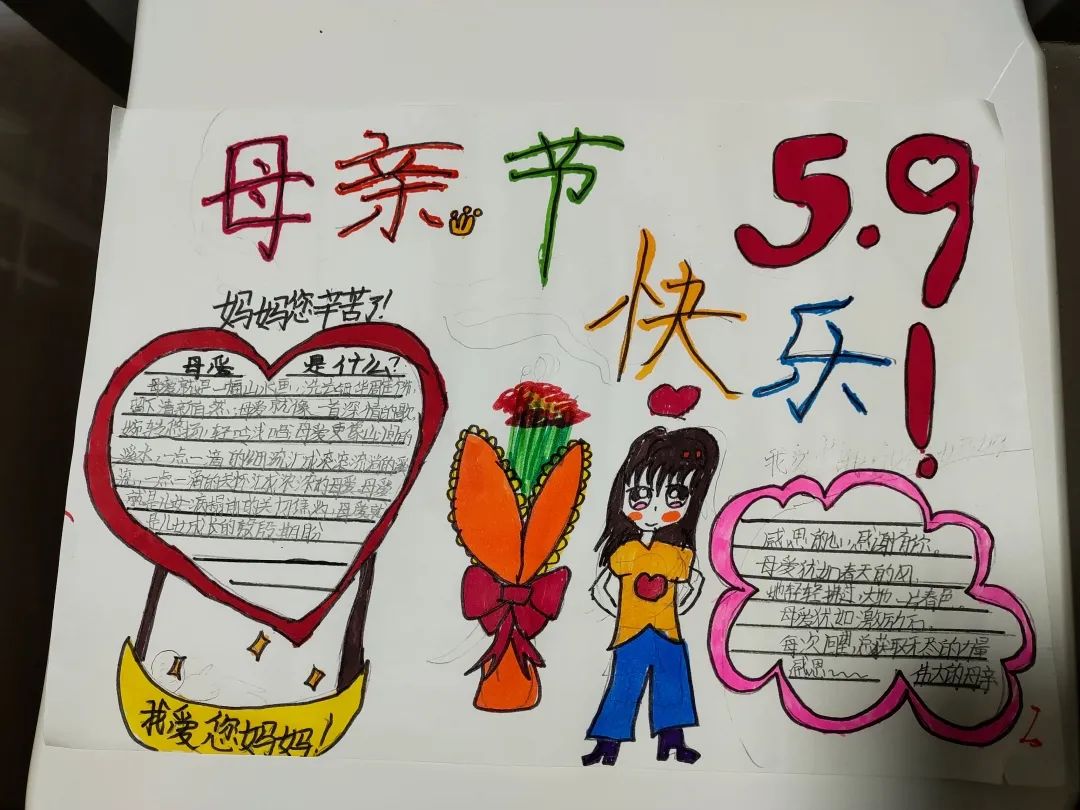 母亲节
快乐
5.9!
妈妈您辛苦了!
母爱 是什么?
母爱就是一幅山水画,洗去铅华雕饰
留下清新自然;母爱就像一首深情的歌,
婉转悠扬,轻吟浅唱;母爱更像山间的
溪水,一点一滴的细流汇成滚滚流淌的
一点一滴的关怀汇成浓浓的母爱,母爱
就是儿女病榻前的关切焦灼,母爱更
是儿女成长的殷殷期盼
我爱您妈妈!
我爱
感恩的心,感谢有你。
母爱犹如春天的风,
她轻轻拂过,大地一片春色。
母爱犹如激励石,
每次回
感恩
伟大的母亲